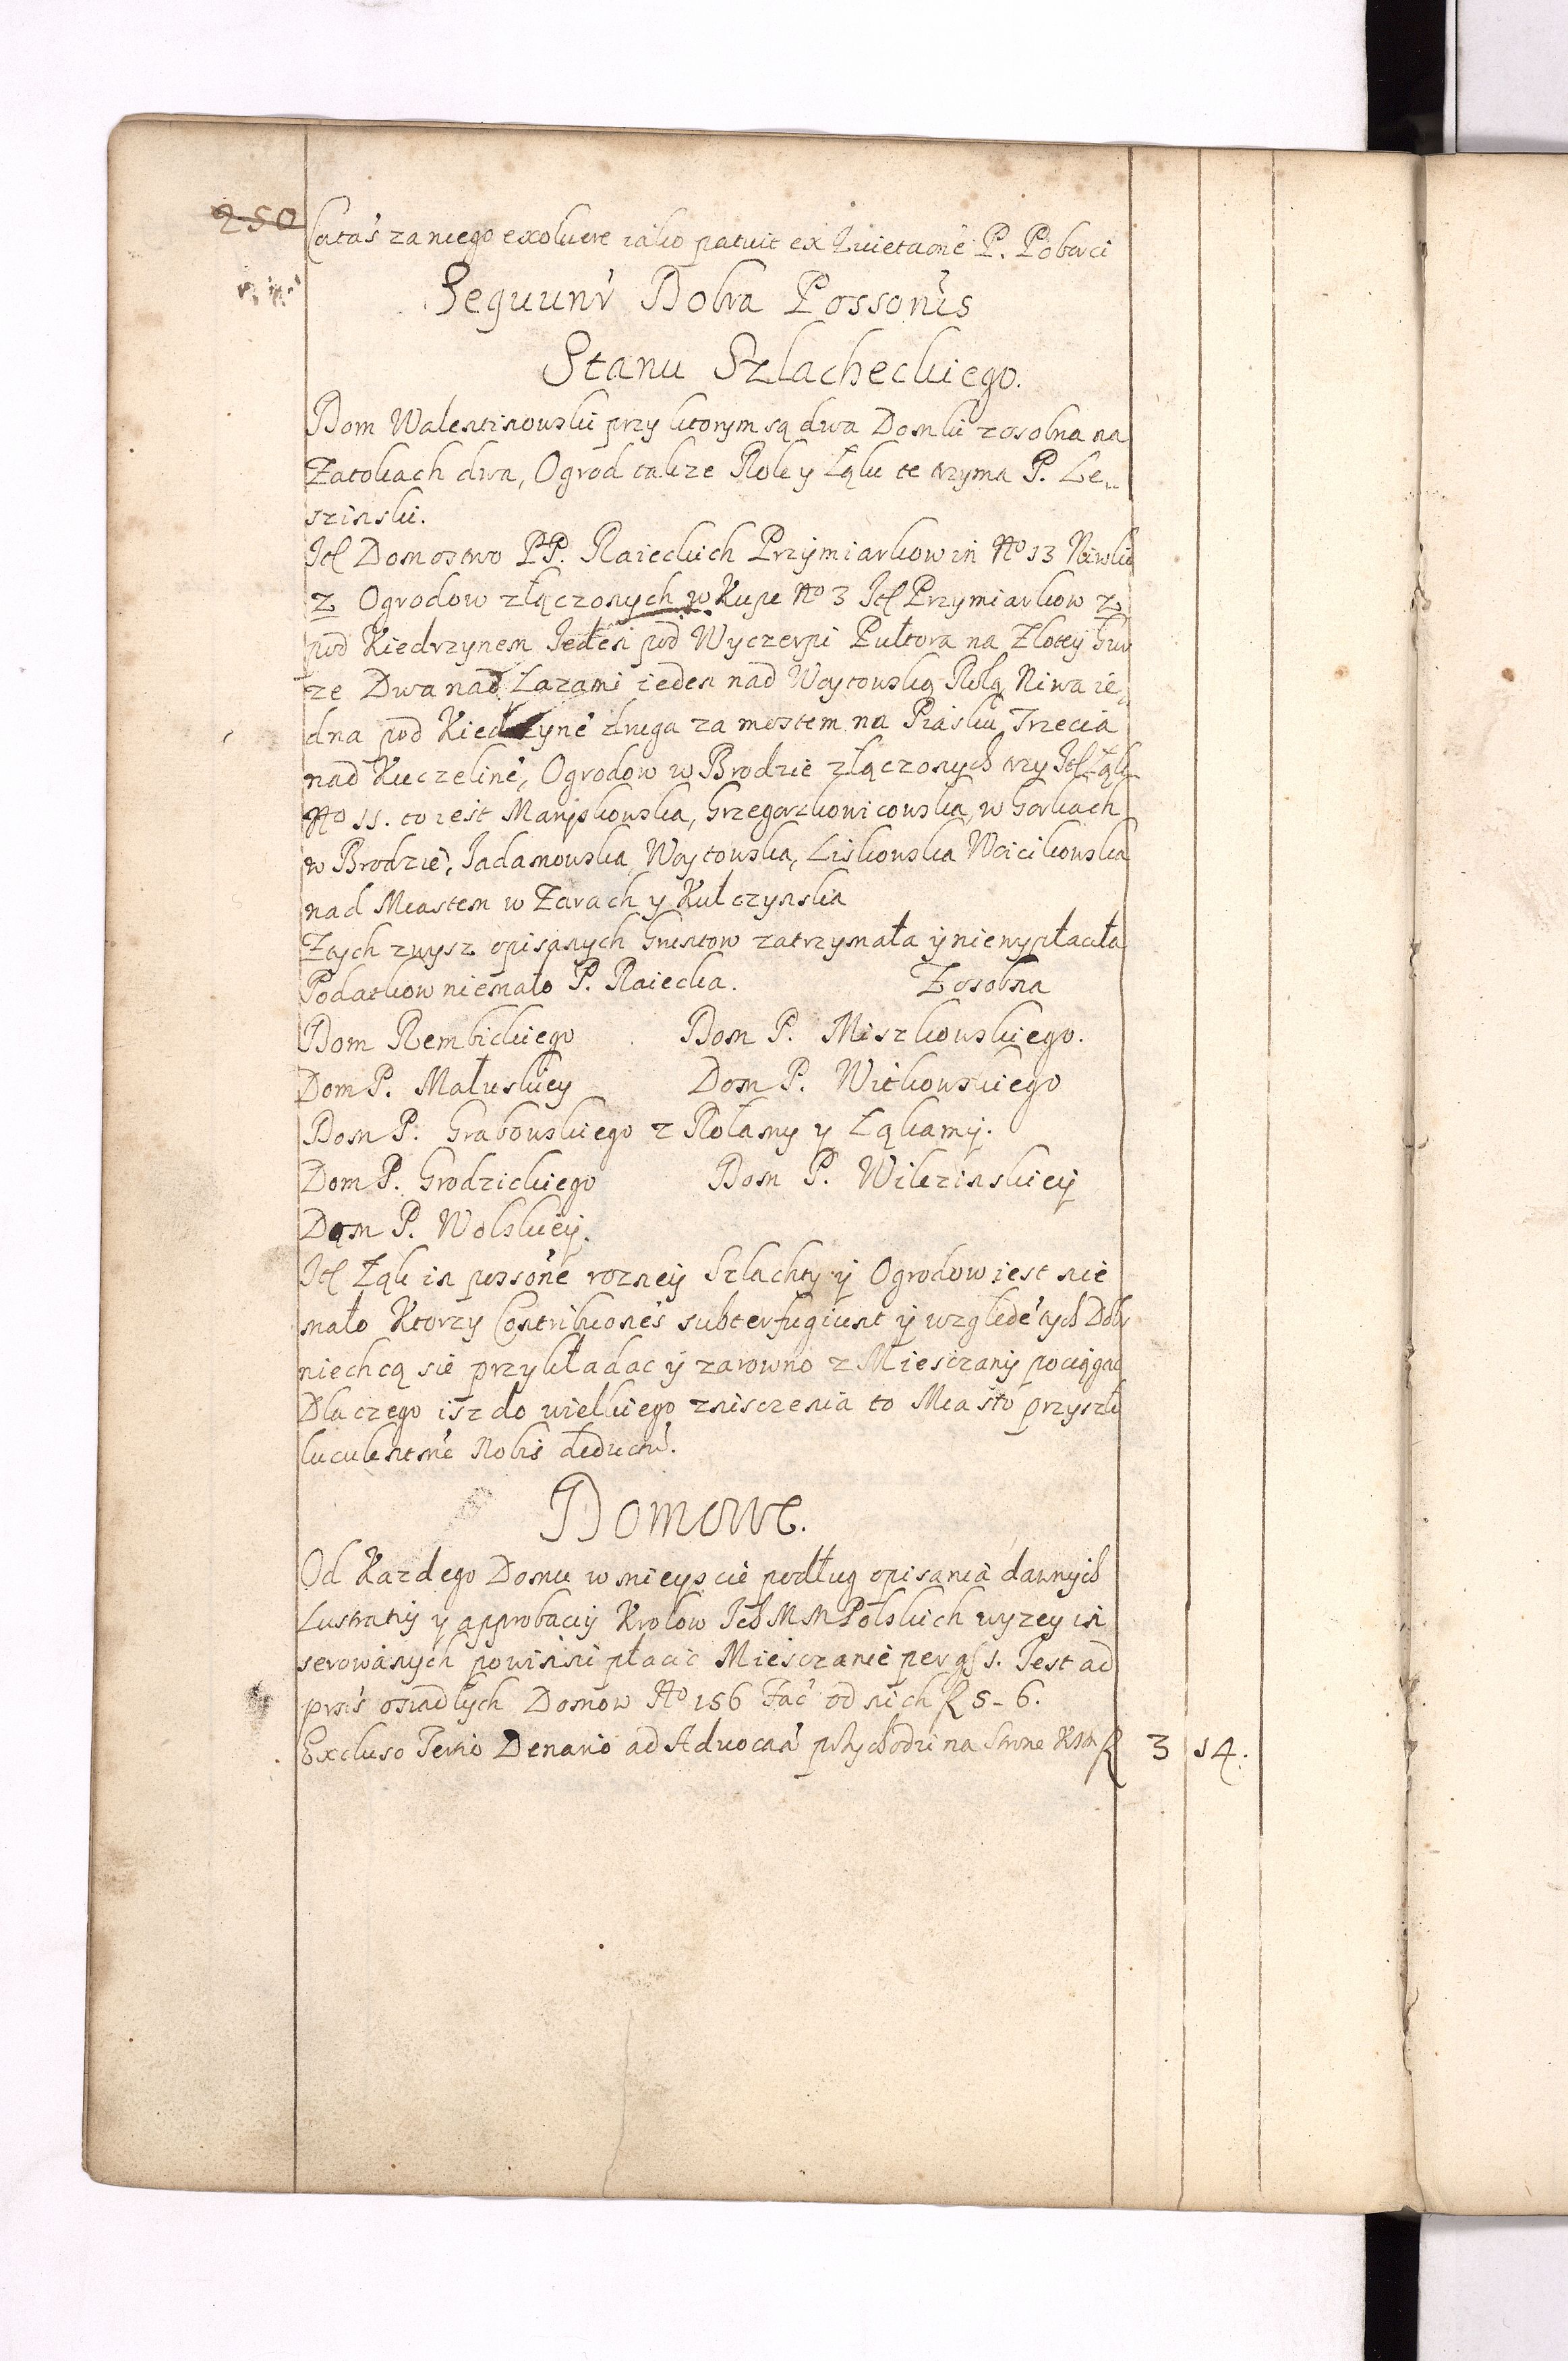 250
Catas za niego exoluere iako patuit ex Quietaone P. Poborci
Sequunr Dobra Possonis
Stanu Szlacheckiego.
Dom Walentinowski przy ktorym są dwa Domki zosobna na
Zatokach dwa, Ogrod takze Role y Łąke te trzyma P. Le„
szinski.
It Domostwo PP. Raieckich Przymiarkow in No 13 Niwki
z Ogrodow złączonych w Kupe No 3 It Przymiarkow 2
pod Kiedrzynem Jeden pod Wyczerpi Pułtora na Zlotey Gur
ze Dwa nad Łazami ieden nad Woytowską Rolą Niwa ie„
dna pod Kiedrzyne druga za mostem na Piasku Trzecia
nad Kuczeline, Ogrodow w Brodzie złączonych trzy It Łąk
No 11. to iest Maryskowska, Grzegorzkowicowska, w Gorkach
w Brodzie, Jadamowska, Woytowska, Liskowska Woicikowska
nad Miastem w Zarach y Kulczynska
Z tych zwysz opisanych Gruntow zatrzymała y niewypłaciła
Podatkow niemało P. Raiecka. Zosobna
Dom Rembickiego Dom P. Miszkowskiego.
Dom P. Małuskiey Dom P. Witkowskiego
Dom P. Grabowskiego z Rolamy y Łąkamy.
Dom P. Grodzickiego Dom P. Wilczinskiey
Dom P. Wolskiey.
It Łąk in possone rozney Szlachty y Ogrodow iest nie
mało Ktorzy Contribuones subterfugiunt y wzglede tych Dobr
niechcą sie przykładac y zarowno z Miesczany pociągac
Dlaczego isz do wielkiego znisczenia to Miasto przyszło
luculentme Nobis deductu.
Domowe.
Od Kazdego Domu w mieyscie podług opisania dawnych
Lustratiy y approbaciy Krolow Ich MM Polskich wyzey in
serowanych powinni płacic Miesczanie per gs 1. Jest ad
prns osiadlych Domow No 156 Fac od nich R 5 - 6.
Excluso Tertio Denario ad Aduocaa przychodzi na Strone KJM R 3 14.